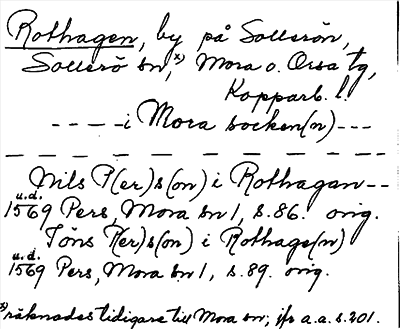 Rothagen, by på Sollerön,
Sollerö sn,ˣ⁾ Mora o. Orsa tg,
Kopparb. l.
- - - - i Mora socken(n) - - -
Nils P(er)s(on) i Rothagan - -
u.d.
1569 Pers, Mora sn 1, s. 86. orig.
Jöns P(er)s(on) i Rothage(n)
u.d.
1569 Pers, Mora sn 1, s. 89. orig.
ˣ⁾räknades tidigare till Mora sn; jfr a.a. s. 201.